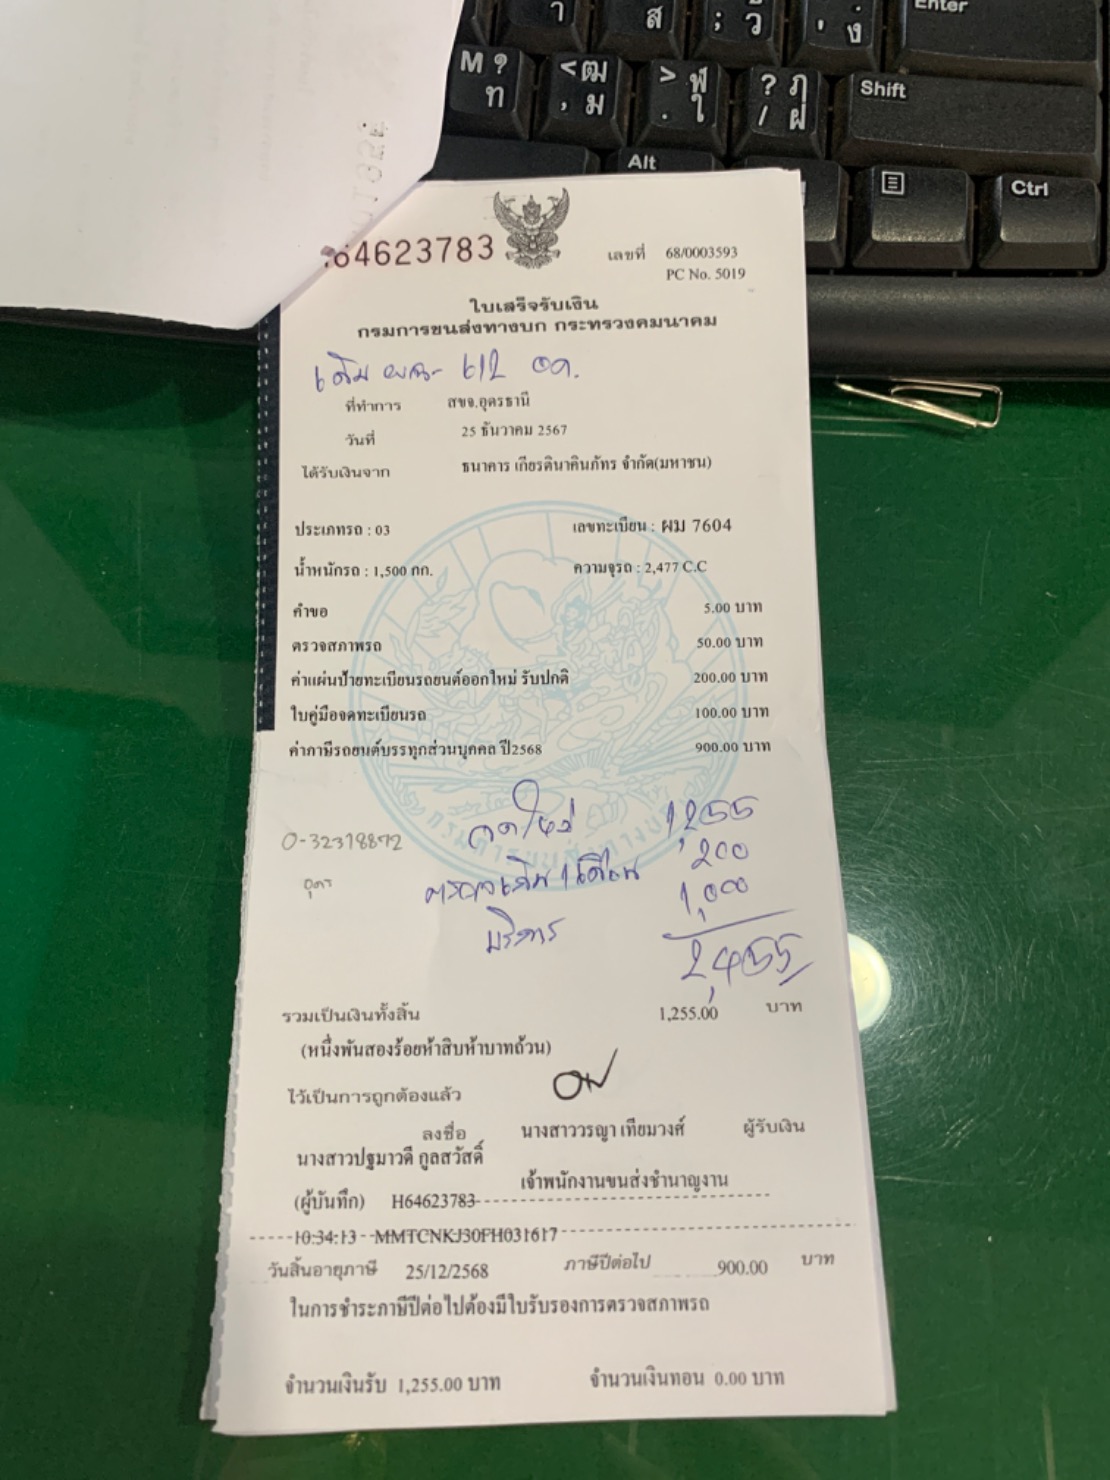 Enter
M ?
ท
< ฒ
, ม
> ฬ
. ใ
? ฦ
/ ฝ
Shift
Alt
Ctrl
64623783
เลขที่ 68/0003593
PC No. 5019
ใบเสร็จรับเงิน
กรมการขนส่งทางบก กระทรวงคมนาคม
เดิม 612 อด.
ที่ทำการ สขจ.อุดรธานี
วันที่ 25 ธันวาคม 2567
ได้รับเงินจาก ธนาคาร เกียรตินาคินภัทร จำกัด(มหาชน)
ประเภทรถ : 03 เลขทะเบียน : ผม 7604
น้ำหนักรถ : 1,500 กก. ความจุรถ : 2,477 C.C
คำขอ 5.00 บาท
ตรวจสภาพรถ 50.00 บาท
ค่าแผ่นป้ายทะเบียนรถยนต์ออกใหม่ รับปกติ 200.00 บาท
ใบคู่มือจดทะเบียนรถ 100.00 บาท
ค่าภาษีรถยนต์บรรทุกส่วนบุคคล ปี2568 900.00 บาท
จดใหม่ 1,255
0-32318872
200
อุดร
ตรวจเดิม 1 เดือน
1,000
บริการ
2,455
รวมเป็นเงินทั้งสิ้น 1,255.00 บาท
(หนึ่งพันสองร้อยห้าสิบห้าบาทถ้วน)
ไว้เป็นการถูกต้องแล้ว
ลงชื่อ นางสาววรญา เทียมวงศ์ ผู้รับเงิน
นางสาวปฐมาวดี กูลสวัสดิ์
เจ้าพนักงานขนส่งชำนาญงาน
(ผู้บันทึก) H64623783
10:34:13 MMTCNKJ30FH031617
วันสิ้นอายุภาษี 25/12/2568 ภาษีปีต่อไป 900.00 บาท
ในการชำระภาษีปีต่อไปต้องมีใบรับรองการตรวจสภาพรถ
จำนวนเงินรับ 1,255.00 บาท จำนวนเงินทอน 0.00 บาท